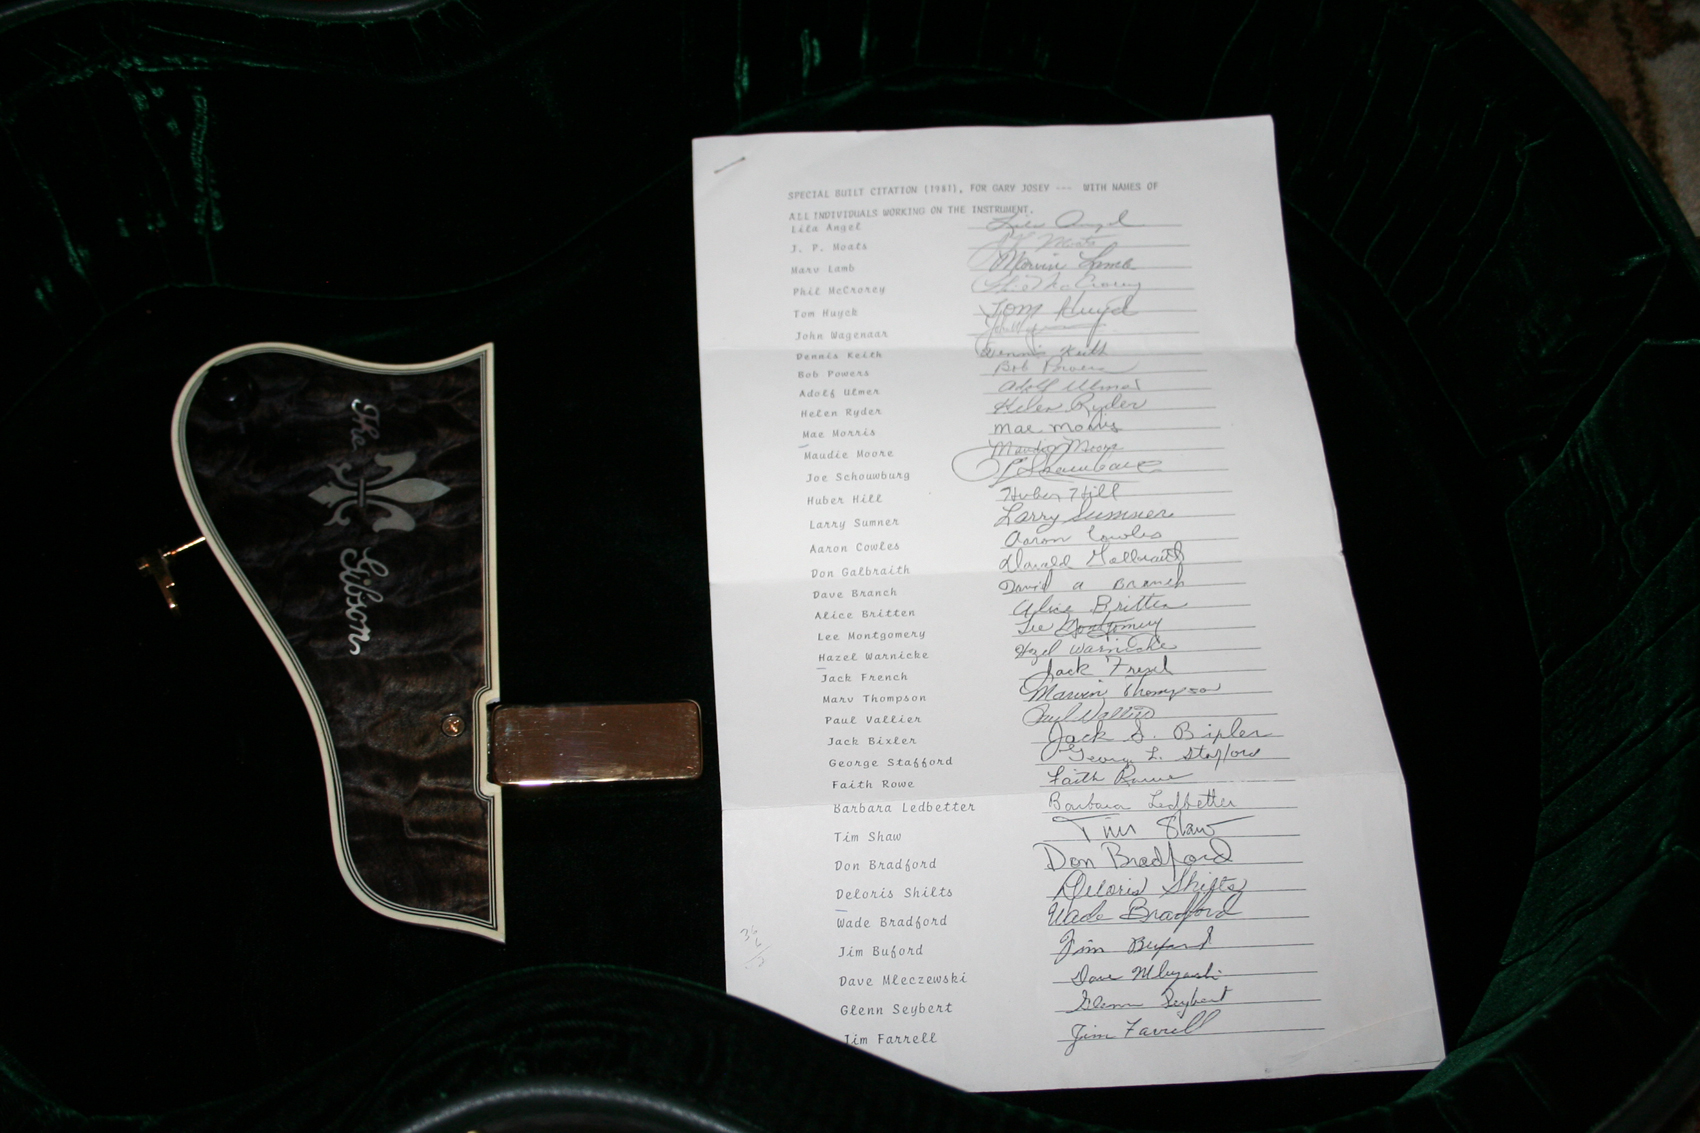 The Gibson
SPECIAL BUILT CITATION (1981), FOR GARY JOSEY --- WITH NAMES OF
ALL INDIVIDUALS WORKING ON THE INSTRUMENT.
Lila Angel Lila Angel
J. P. Moats J P Moats
Marv Lamb Marvin Lamb
Phil McCrorey Phil McCrorey
Tom Huyck Tom Huyck
John Wagenaar
Dennis Keith Dennis Keith
Bob Powers Bob Powers
Adolf Ulmer Adolf Ulmer
Helen Ryder Helen Ryder
Mae Morris Mae Morris
Maudie Moore Maudie Moore
Joe Schouwburg
Huber Hill Huber Hill
Larry Sumner Larry Sumner
Aaron Cowles Aaron Cowles
Don Galbraith Donald Galbraith
Dave Branch David A Branch
Alice Britten Alice Britten
Lee Montgomery Lee Montgomery
Hazel Warnicke Hazel Warnicke
Jack French Jack French
Marv Thompson Marvin Thompson
Paul Vallier Paul Vallier
Jack Bixler Jack S. Bixler
George Stafford George L. Stafford
Faith Rowe Faith Rowe
Barbara Ledbetter Barbara Ledbetter
Tim Shaw Tim Shaw
Don Bradford Don Bradford
Deloris Shilts Deloris Shilts
Wade Bradford Wade Bradford
Jim Buford Jim Buford
Dave Mleczewski Dave
Glenn Seybert Glenn Seybert
Jim Farrell Jim Farrell
36